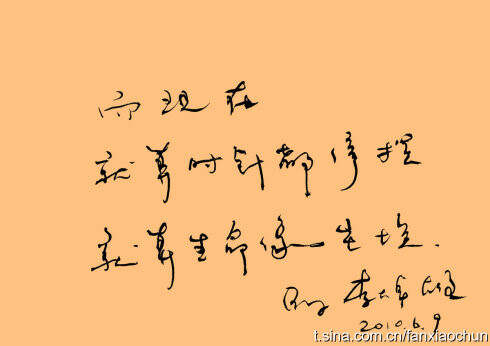 而现在
就算时针都停摆
就算生命像尘埃.
李焯雄
2010.6.9
t.sina.com.cn/fanxiaochun